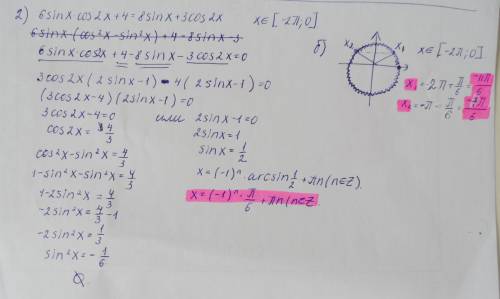 2) 6sinx cos2x+4=8sinx+3cos2x   x∈[-2π;0]
6sinx(cos²x-sin²x)+4=8sinx-3
6sinx cos2x+4-8sinx-3cos2x=0
3cos2x(2sinx-1)-4(2sinx-1)=0
(3cos2x-4)(2sinx-1)=0
3cos2x-4=0   или   2sinx-1=0
cos2x=4/3   2sinx=1
cos²x-sin²x=4/3   sinx=1/2
1-sin²x-sin²x=4/3   x=(-1)ⁿ·arcsin1/2+πn(n∈Z).
1-2sin²x=4/3   x=(-1)ⁿ·π/6+πn(n∈Z.
-2sin²x=4/3-1
-2sin²x=1/3
sin²x=-1/6
∅.
б)   x₂   x₁   x∈[-2π;0]
x₁=-2π+π/6=-11π/6
x₂=-π-π/6=-7π/6